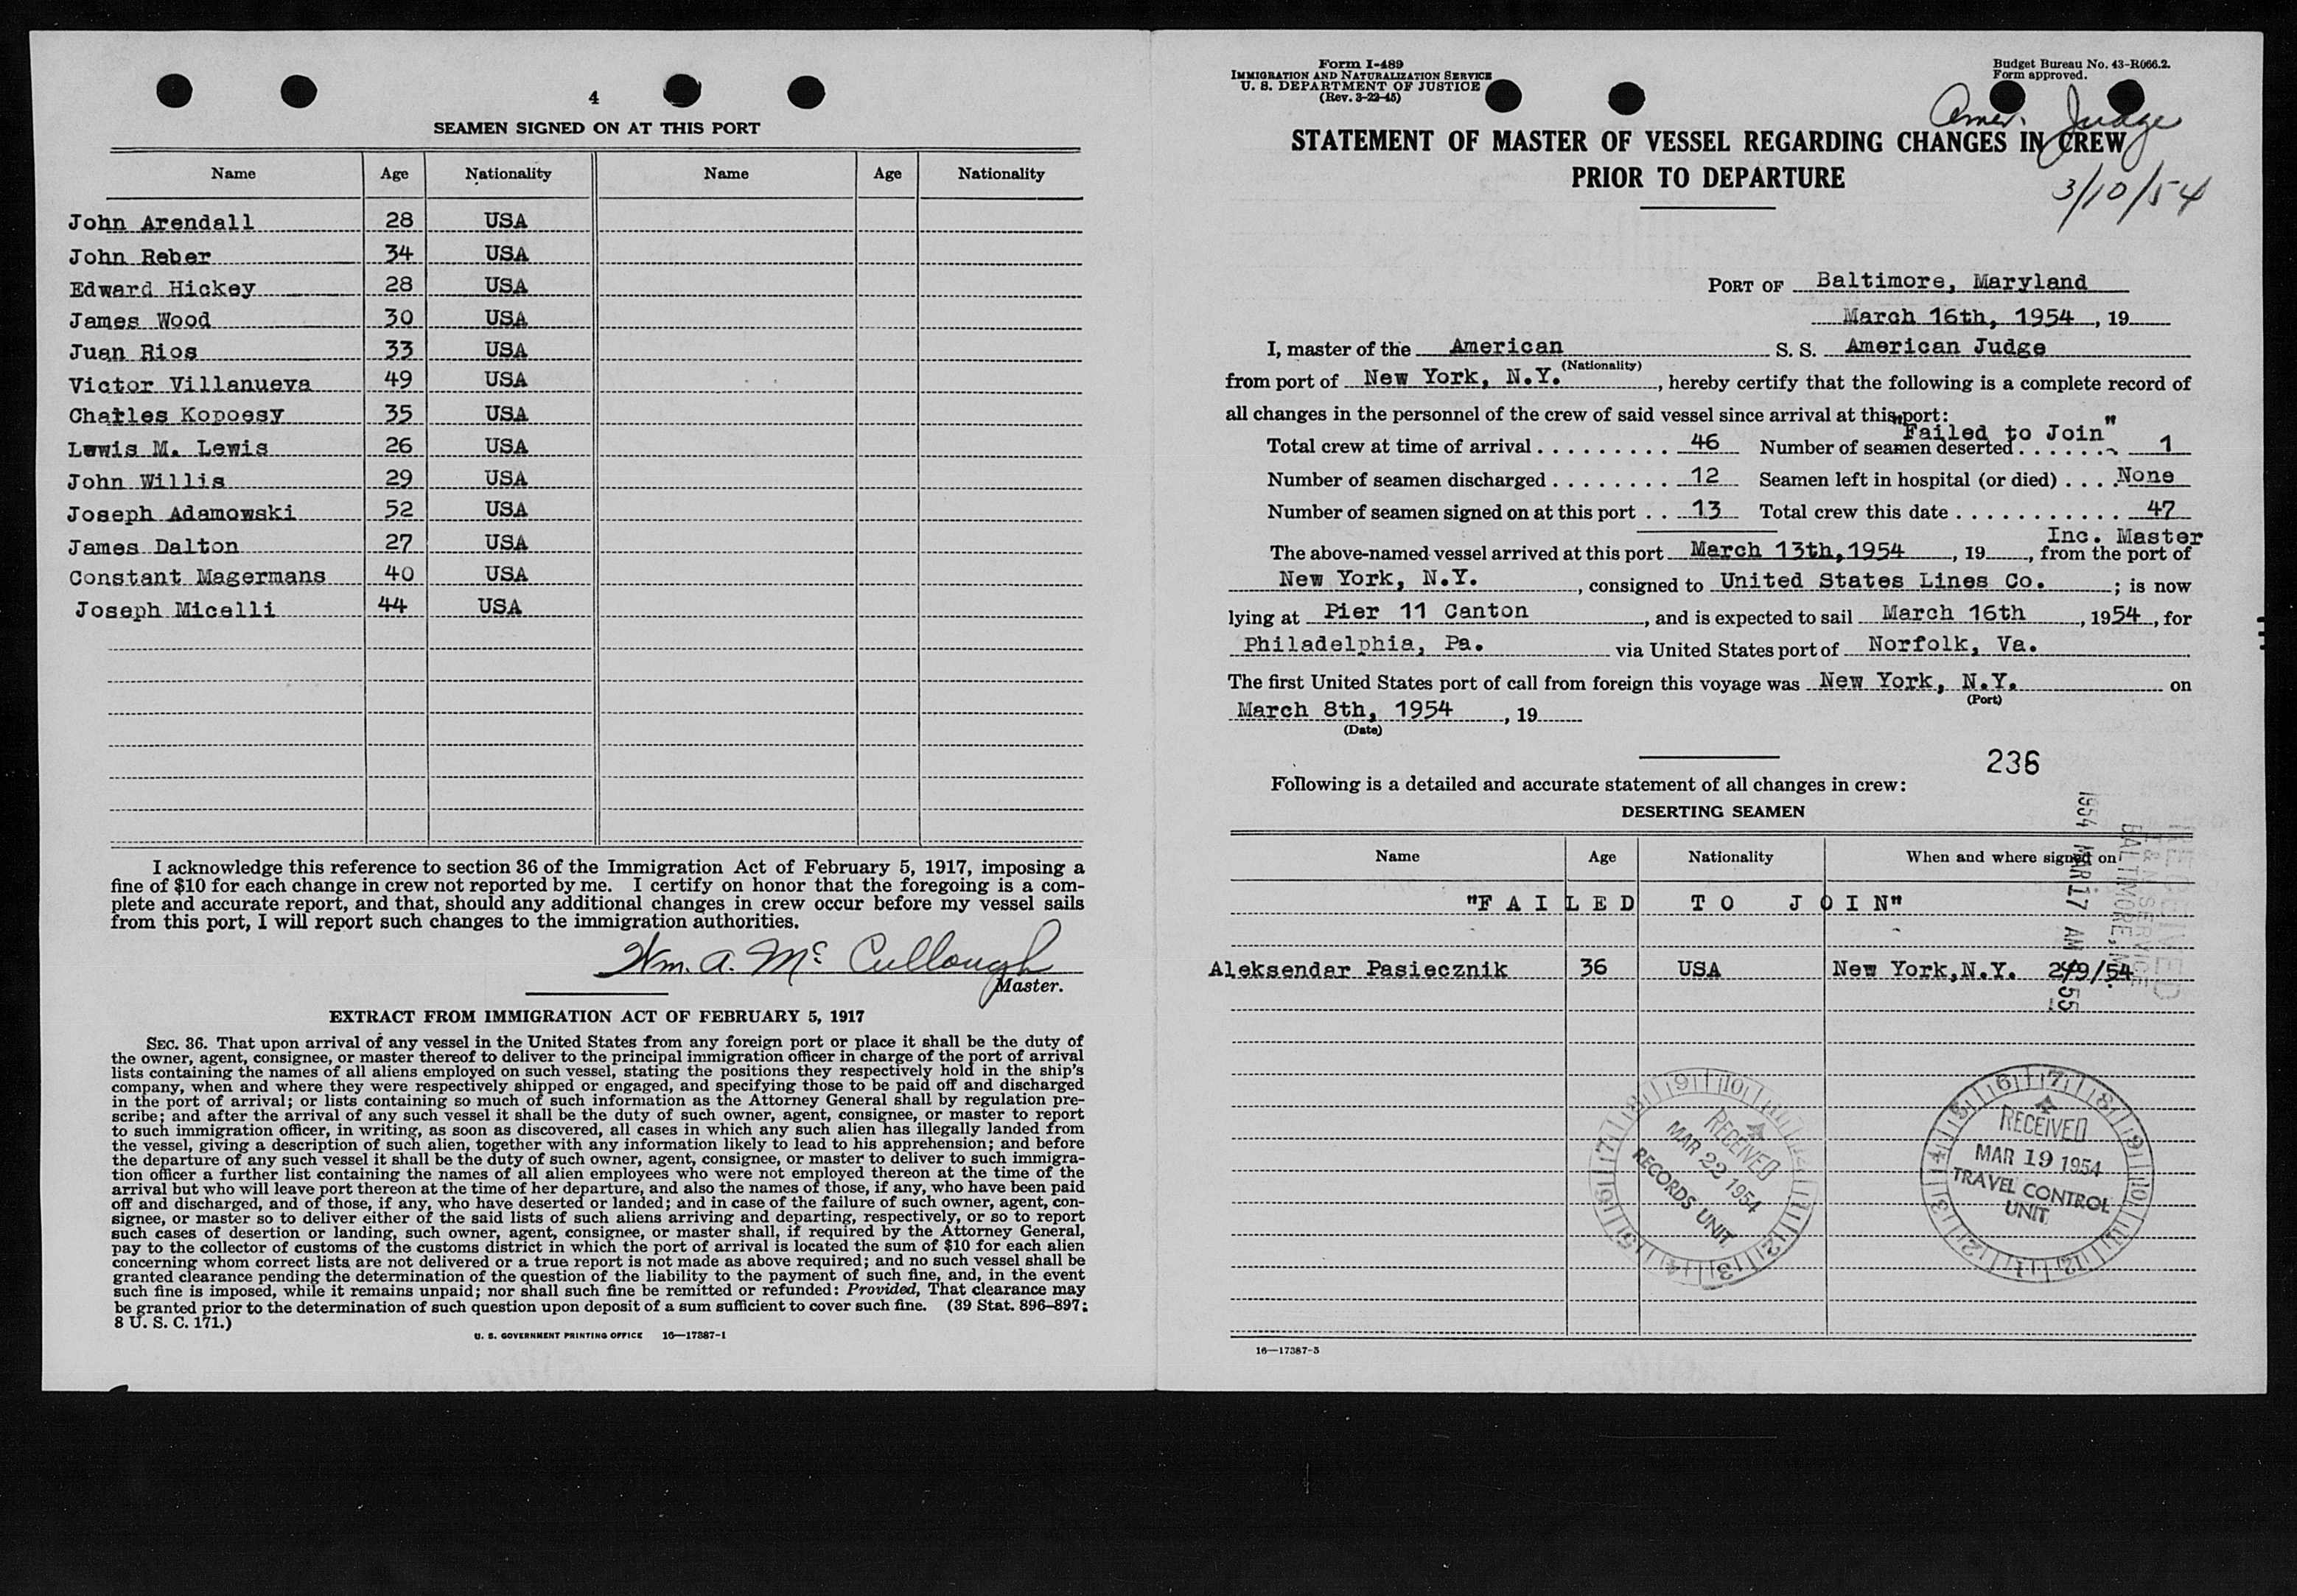 4
SEAMEN SIGNED ON AT THIS PORT
Name Age Nationality Name Age Nationality
John Arendall 28 USA
John Reber 34 USA
Edward Hickey 28 USA
James Wood 30 USA
Juan Rios 33 USA
Victor Villanueva 49 USA
Charles Kopoesy 35 USA
Lewis M. Lewis 26 USA
John Willis 29 USA
Joseph Adamowski 52 USA
James Dalton 27 USA
Constant Magermans 40 USA
Joseph Micelli 44 USA
I acknowledge this reference to section 36 of the Immigration Act of February 5, 1917, imposing a
fine of $10 for each change in crew not reported by me. I certify on honor that the foregoing is a com-
plete and accurate report, and that, should any additional changes in crew occur before my vessel sails
from this port, I will report such changes to the immigration authorities.
Wm. A. McCullough
Master.
EXTRACT FROM IMMIGRATION ACT OF FEBRUARY 5, 1917
SEC. 36. That upon arrival of any vessel in the United States from any foreign port or place it shall be the duty of
the owner, agent, consignee, or master thereof to deliver to the principal immigration officer in charge of the port of arrival
lists containing the names of all aliens employed on such vessel, stating the positions they respectively hold in the ship's
company, when and where they were respectively shipped or engaged, and specifying those to be paid off and discharged
in the port of arrival; or lists containing so much of such information as the Attorney General shall by regulation pre-
scribe; and after the arrival of any such vessel it shall be the duty of such owner, agent, consignee, or master to report
to such immigration officer, in writing, as soon as discovered, all cases in which any such alien has illegally landed from
the vessel, giving a description of such alien, together with any information likely to lead to his apprehension; and before
the departure of any such vessel it shall be the duty of such owner, agent, consignee, or master to deliver to such immigra-
tion officer a further list containing the names of all alien employees who were not employed thereon at the time of the
arrival but who will leave port thereon at the time of her departure, and also the names of those, if any, who have been paid
off and discharged, and of those, if any, who have deserted or landed; and in case of the failure of such owner, agent, con-
signee, or master so to deliver either of the said lists of such aliens arriving and departing, respectively, or so to report
such cases of desertion or landing, such owner, agent, consignee, or master shall, if required by the Attorney General,
pay to the collector of customs of the customs district in which the port of arrival is located the sum of $10 for each alien
concerning whom correct lists are not delivered or a true report is not made as above required; and no such vessel shall be
granted clearance pending the determination of the question of the liability to the payment of such fine, and, in the event
such fine is imposed, while it remains unpaid; nor shall such fine be remitted or refunded: Provided, That clearance may
be granted prior to the determination of such question upon deposit of a sum sufficient to cover such fine. (39 Stat. 896–897;
8 U. S. C. 171.)
U. S. GOVERNMENT PRINTING OFFICE 16—17387-1
Form I-489
IMMIGRATION AND NATURALIZATION SERVICE
U. S. DEPARTMENT OF JUSTICE
(Rev. 3-22-45)
Budget Bureau No. 43-R066.2.
Form approved.
Amer. Judge
3/10/54
STATEMENT OF MASTER OF VESSEL REGARDING CHANGES IN CREW
PRIOR TO DEPARTURE
PORT OF Baltimore, Maryland
March 16th, 1954, 19
I, master of the American S. S. American Judge
(Nationality)
from port of New York, N.Y., hereby certify that the following is a complete record of
all changes in the personnel of the crew of said vessel since arrival at this port:
"Failed to Join"
Total crew at time of arrival . . . . . . . . . 46 Number of seamen deserted . . . . . . . 1
Number of seamen discharged . . . . . . . . 12 Seamen left in hospital (or died) . . . . None
Number of seamen signed on at this port . . 13 Total crew this date . . . . . . . . . . . . 47
Inc. Master
The above-named vessel arrived at this port March 13th,1954, 19, from the port of
New York, N.Y., consigned to United States Lines Co.; is now
lying at Pier 11 Canton, and is expected to sail March 16th, 1954, for
Philadelphia, Pa. via United States port of Norfolk, Va.
The first United States port of call from foreign this voyage was New York, N.Y. on
(Port)
March 8th, 1954, 19
(Date)
236
Following is a detailed and accurate statement of all changes in crew:
DESERTING SEAMEN
Name Age Nationality When and where signed on
"FAILED TO JOIN"
Aleksendar Pasiecznik 36 USA New York,N.Y. 2/9/54
RECEIVED
BALTIMORE,
1954 MAR 17 AM 55
RECEIVED
MAR 22 1954
RECORDS UNIT
RECEIVED
MAR 19 1954
TRAVEL CONTROL
UNIT
16—17387-3